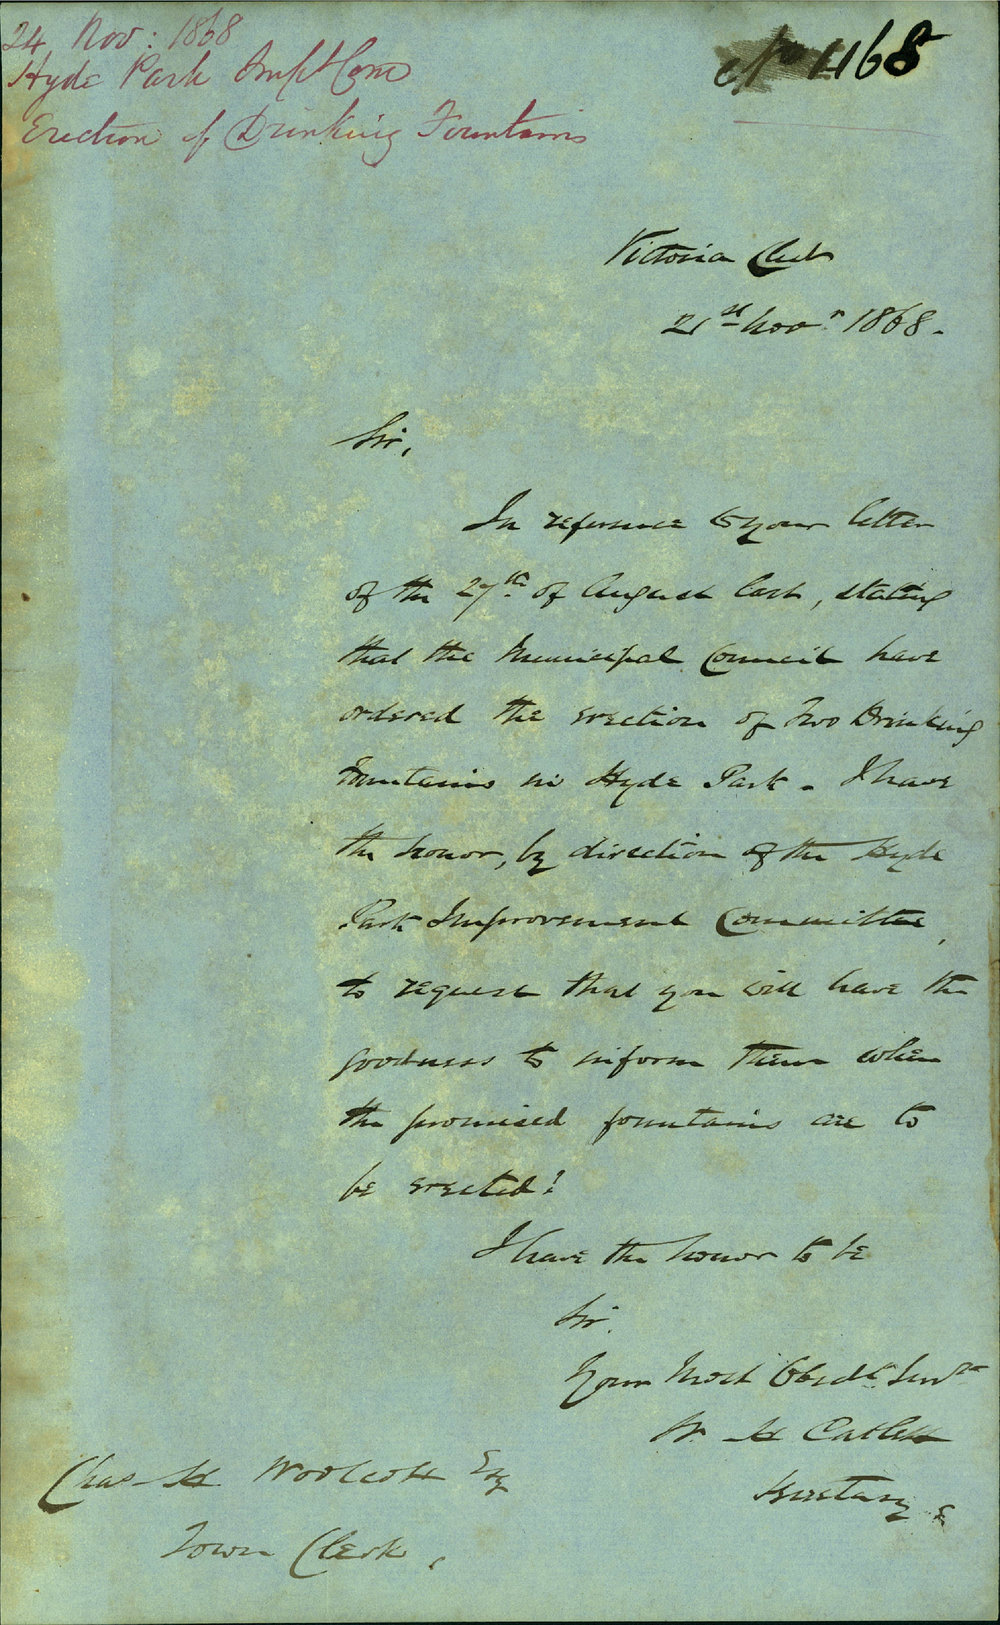 24 Nov: 1868
Hyde Park Impt Com
Erection of Drinking Fountains
No 1168
Victoria Club
21st Novr. 1868.
Sir,
In reference to your letter
of the 27th of August last, stating
that the Municipal Council have
ordered the erection of Two Drinking
Fountains in Hyde Park. I have
the honor, by direction of the Hyde
Park Improvement Committee,
to request that you will have the
goodness to inform them when
the promised fountains are to
be erected?
I have the honor to be
Sir.
Your Most Obedt. Servt
W. H Catlett
Secretary
Chas. H. Woolcott Esq
Town Clerk,